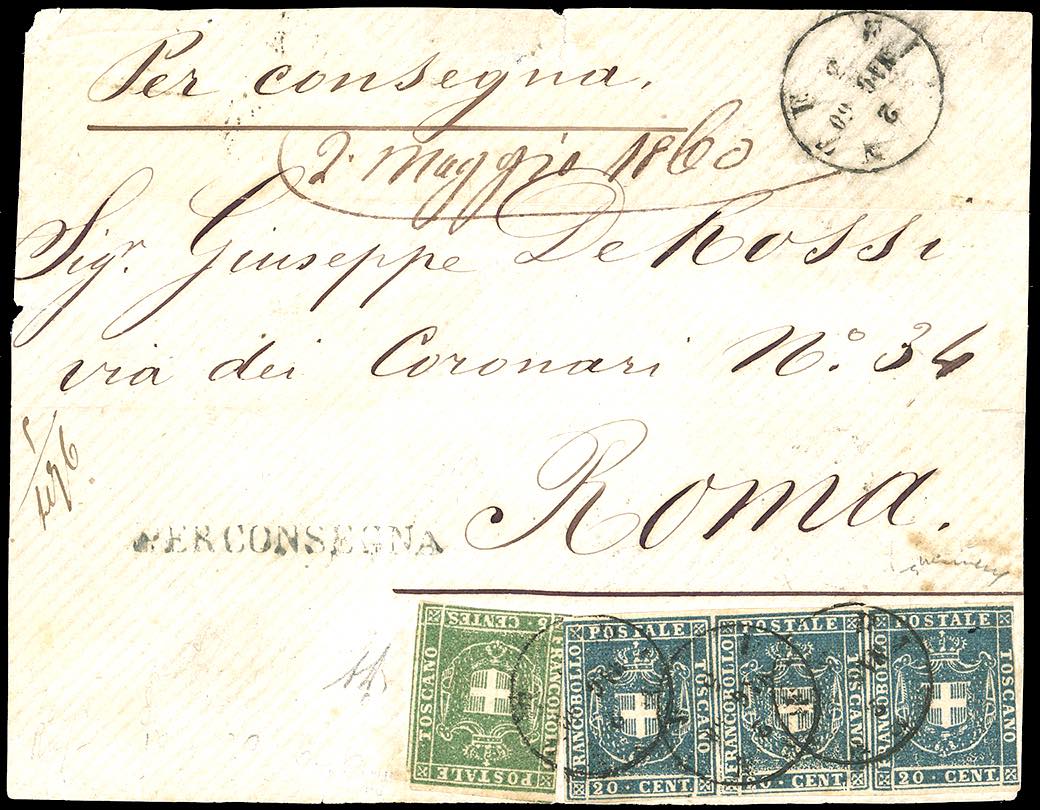 Per consegna.
2. Maggio 1860
FIRENZE
2 MAG 60
Sigr. Giuseppe De Rossi
via dei Coronari No. 34
Roma.
PER CONSEGNA
FRANCOBOLLO POSTALE TOSCANO 5 CENTES.
FRANCOBOLLO POSTALE TOSCANO 20 CENT.
FRANCOBOLLO POSTALE TOSCANO 20 CENT.
FRANCOBOLLO POSTALE TOSCANO 20 CENT.